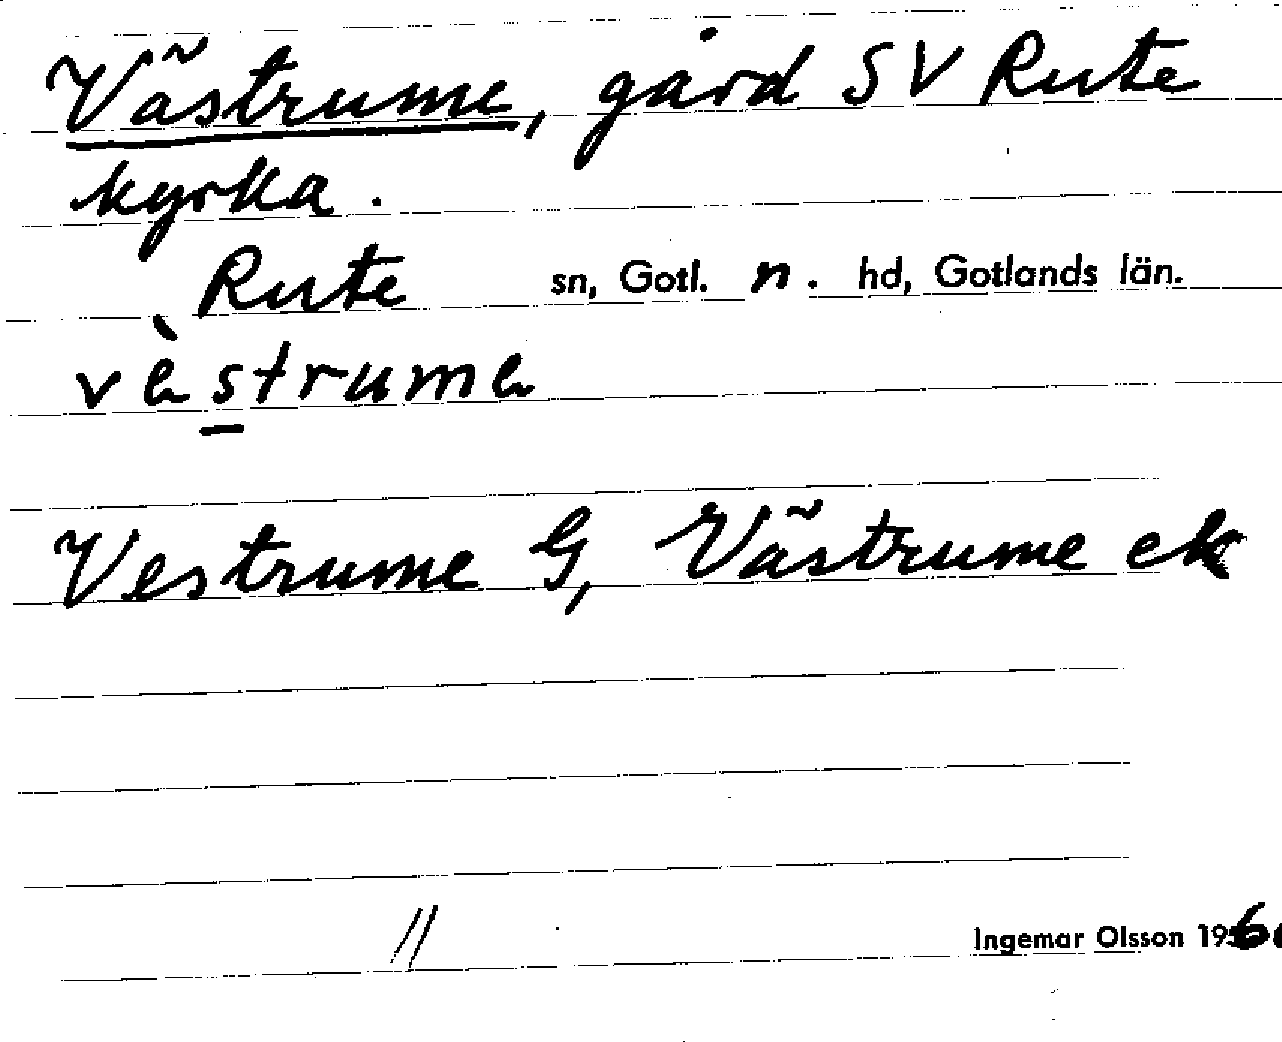 Västrume, gård SV Rute
kyrka.
Rute sn, Gotl. n. hd, Gotlands län.
vèstrume
Vestrume G, Västrume ek
//
Ingemar Olsson 196